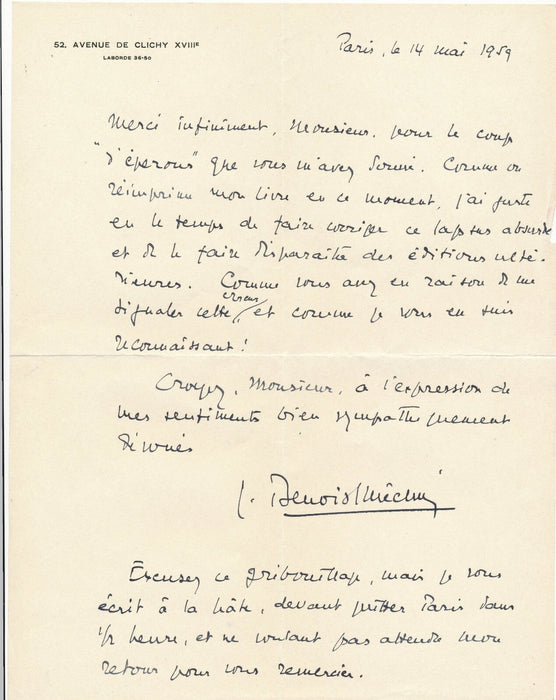 52, AVENUE DE CLICHY XVIIIᴱ
LABORDE 36-50
Paris, le 14 mai 1959
Merci infiniment, Monsieur, pour le coup
"d'éperons" que vous m'avez donné. Comme on
réimprime mon livre en ce moment, j'ai juste
eu le temps de faire corriger ce lapsus absurde
et de le faire disparaître des éditions ulté-
rieures. Comme vous avez eu raison de me
signaler cette erreur, et comme je vous en suis
reconnaissant !
Croyez, Monsieur, à l'expression de
mes sentiments bien sympathiquement
dévoués
J. Benoist-Méchin
Excusez ce gribouillage, mais je vous
écrit à la hâte, devant quitter Paris dans
1/2 heure, et ne voulant pas attendre mon
retour pour vous remercier.